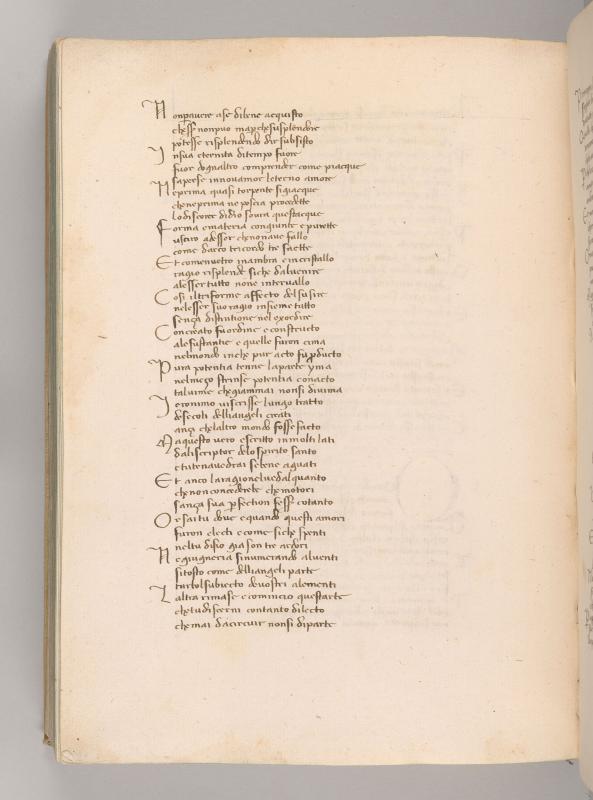 Non pavere ase dilene acquisto
chesse nonpuo ma perchesusplendore
potesse risplendendo dir subsisto
Insua eternita ditempo fuore
fuor dognaltro comprender come piacque
saperse innovamor leterno amore
Neprima quasi torpente sigiacque
cheneprima ne poscia procedette
lo discorer didio sovra questacque
Forma emateria congiunte e purette
usciro adesser chenonave fallo
come darco tricordo tre saette
Et comenvetro inambra eincristallo
ragio risplende siche dalvenire
alesser tutto none intervallo
Cosi il triforme affecto del su sire
nelesser suo ragio insieme tutto
sença distintione nel exordire
Concreato fu ordine e constructo
ale sustantie e quelle furon cima
nelmondo inche pur acto fu producto
Pura potentia tenne laparte yma
nelmeço strinse potentia conacto
tal vime chegiammai nonsi divima
Ieronimo viscrisse lungo tratto
desecoli delliangeli creati
ançi chelaltro mondo fosse facto
Ma questo vero escritto inmolti lati
daliscriptor delo spirito santo
e tu tenavedrai sebene aguati
Et anco laragionelvedalquanto
chenon concederebe chemotori
sança sua perfection fesse cotanto
Or sai tu dove equando questi amori
furon electi e come siche spenti
neltu disio gia son tre ardori
Ne giugneria sinumerando alventi
sitosto come delliangeli parte
turbolsubiecto devostri alementi
Laltra rimase e comincio questarte
chetudiscerni contanto dilecto
chemai dacircuir nonsi diparte